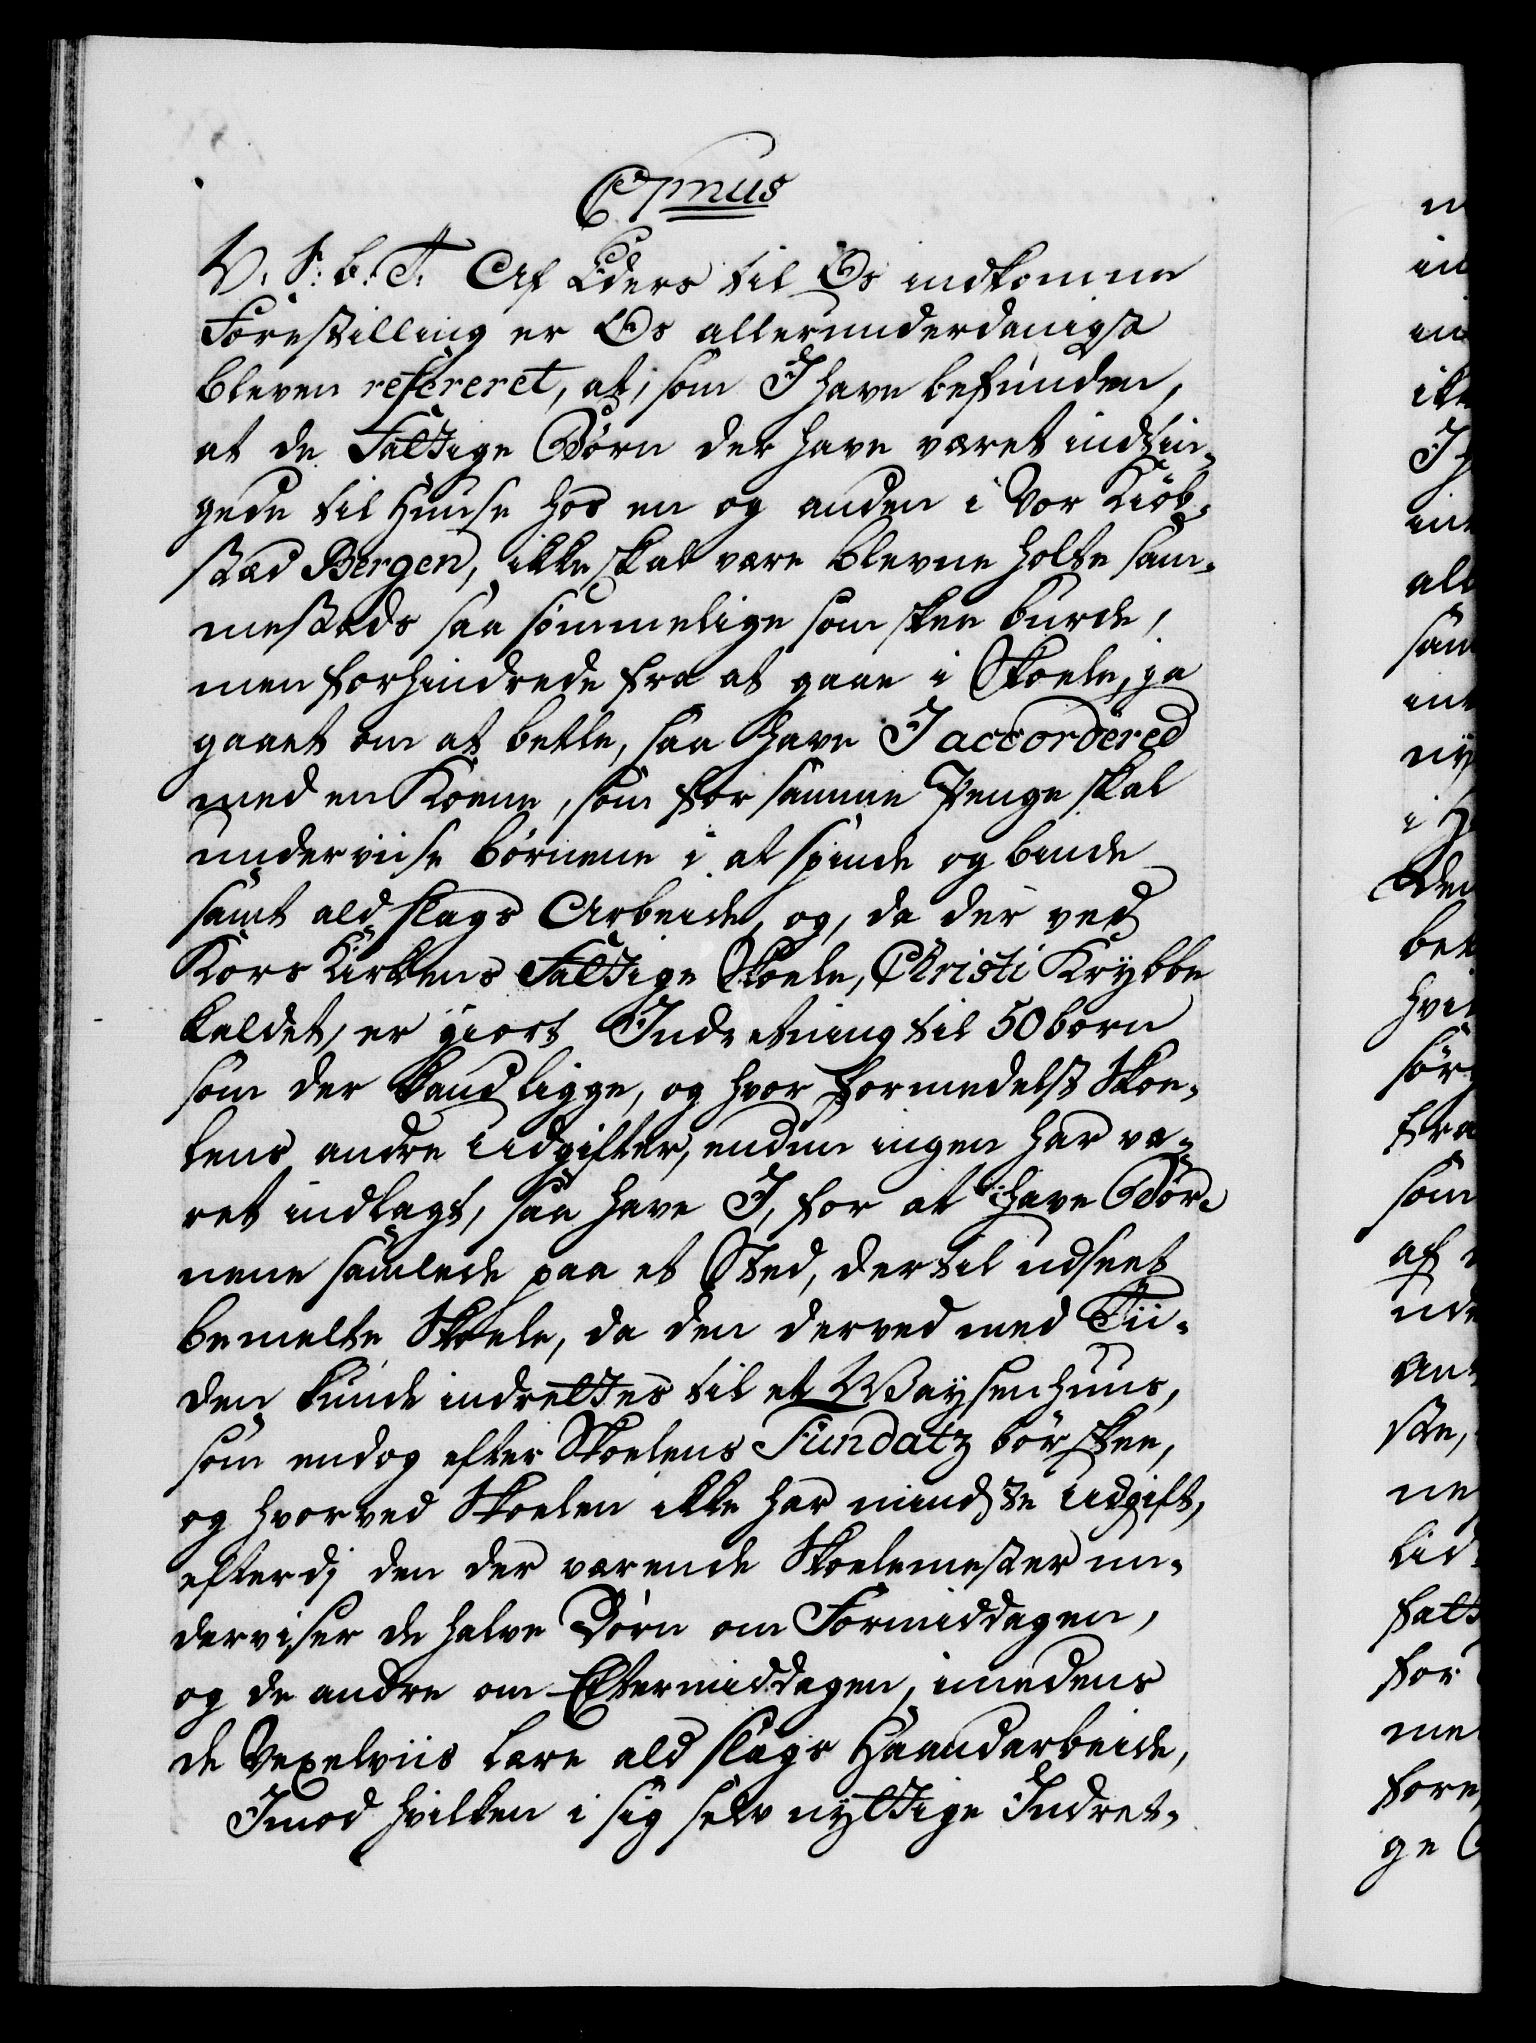 Cpmus
V. S. b. T. Af Eders til Os indkomne
Forestilling er Os allerunderdanigst
bleven refereret, at, som I have befunden,
at de Fattige Børn der have været indtin-
gede til Huuse hos en og anden i Vor Kiøb-
stad Bergen, ikke skal være blevne holte sam-
mestæds saa sømmelige som skee burde,
men forhindrede fra at gaae i Skoele, ja
gaaet om at betle, saa have I accordered
med en Koene, som for samme Penge skal
underviise børnene i at spinde og binde
samt ald slags Arbeide, og, da der ved
Kors Kirkens Fattige Skoele, Christi Krybbe
kaldet, er giort Indretning til 50 børn
som der kand ligge, og hvor formedelst Skoe-
lens andre Udgifter, endnu ingen har væ-
ret indlagt, saa have I, for at have Bør-
nene samlede paa et Sted, dertil udseet
bemelte Skoele, da den derved med Tii-
den kunde indrettes til et Waysenhuus,
som endog efter Skoelens Fundatz bør skee,
og hvorved Skoelen ikke har mindste Udgift,
efterdj den der værende Skoelemester un-
derviser de halve Børn om Formiddagen,
og de andre om Eftermiddagen, imedens
de Vexelviis lære ald slags Haandarbeide,
Imod hvilken i sig selv nyttige Indret-